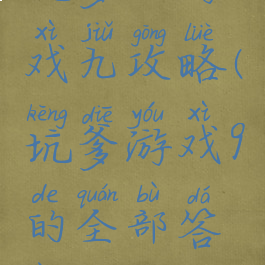 xì jiǔ gōng lüè
戏九攻略(
kēng diē yóu xì
坑爹游戏9
de quán bù dá
的全部答